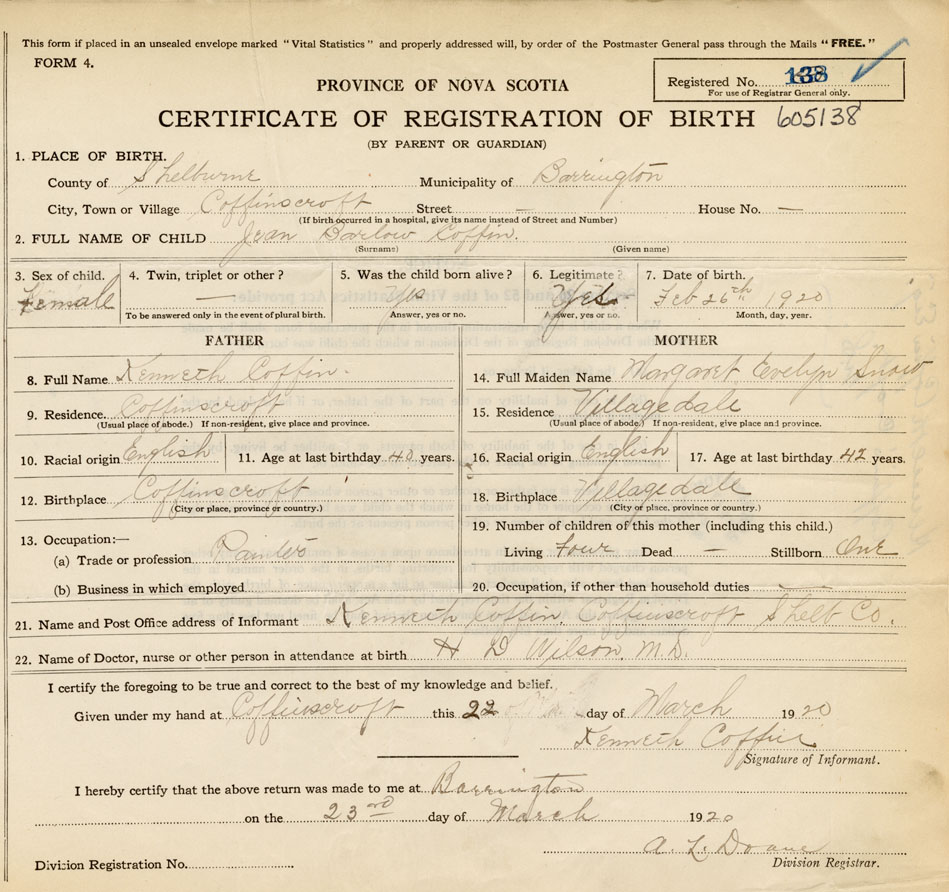 This form if placed in an unsealed envelope marked "Vital Statistics" and properly addressed will, by order of the Postmaster General pass through the Mails "FREE."
FORM 4.
Registered No. 138
For use of Registrar General only.
PROVINCE OF NOVA SCOTIA
CERTIFICATE OF REGISTRATION OF BIRTH 605138
(BY PARENT OR GUARDIAN)
1. PLACE OF BIRTH.
County of Shelburne Municipality of Barrington
City, Town or Village Coffinscroft Street — House No. —
(If birth occurred in a hospital, give its name instead of Street and Number)
2. FULL NAME OF CHILD Jean Barlow Coffin.
(Surname) (Given name)
3. Sex of child. 4. Twin, triplet or other? 5. Was the child born alive? 6. Legitimate? 7. Date of birth.
Female — Yes Yes Feb 26th 1920
To be answered only in the event of plural birth. Answer, yes or no. Answer, yes or no. Month, day, year.
FATHER MOTHER
8. Full Name Kenneth Coffin. 14. Full Maiden Name Margaret Evelyn Snow
9. Residence. Coffinscroft 15. Residence Villagedale
(Usual place of abode.) If non-resident, give place and province. (Usual place of abode.) If non-resident, give place and province.
10. Racial origin English 11. Age at last birthday 40 years. 16. Racial origin English 17. Age at last birthday 42 years.
12. Birthplace Coffinscroft 18. Birthplace Villagedale
(City or place, province or country.) (City or place, province or country.)
13. Occupation:— 19. Number of children of this mother (including this child.)
(a) Trade or profession Painter Living four Dead — Stillborn One
(b) Business in which employed 20. Occupation, if other than household duties —
21. Name and Post Office address of Informant Kenneth Coffin, Coffinscroft Shelb Co.
22. Name of Doctor, nurse or other person in attendance at birth H D Wilson, M.D.
I certify the foregoing to be true and correct to the best of my knowledge and belief.
Given under my hand at Coffinscroft this 22 day of March 1920
Kenneth Coffin
Signature of Informant.
I hereby certify that the above return was made to me at Barrington
on the 23rd day of March 1920
A. L. Doane
Division Registration No. Division Registrar.